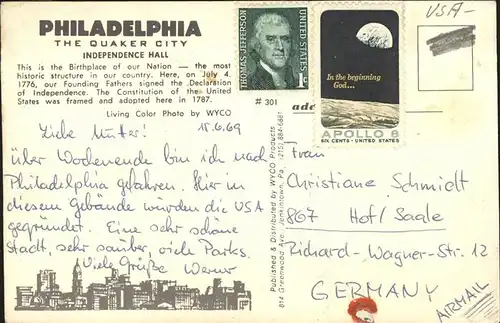 PHILADELPHIA
THE QUAKER CITY
INDEPENDENCE HALL
This is the Birthplace of our Nation — the most
historic structure in our country. Here, on July 4,
1776, our Founding Fathers signed the Declaration
of Independence. The Constitution of the United
States was framed and adopted here in 1787.
Living Color Photo by WYCO
# 301
THOMAS JEFFERSON
UNITED STATES
1c
In the beginning
God...
APOLLO 8
SIX CENTS · UNITED STATES
USA-
Liebe Mutter! 15.6.69
über Wochenende bin ich nach
Philadelphia gefahren. Hier in
diesem Gebäude wurden die USA
gegründet. Eine sehr schöne
Stadt, sehr sauber, viele Parks.
Viele Grüße Werner
Published & Distributed by WYCO Products
814 Greenwood Ave., Jenkintown, Pa. (215) 884-6881
Frau
Christiane Schmidt
867 Hof/Saale
Richard-Wagner-Str. 12
GERMANY
AIRMAIL